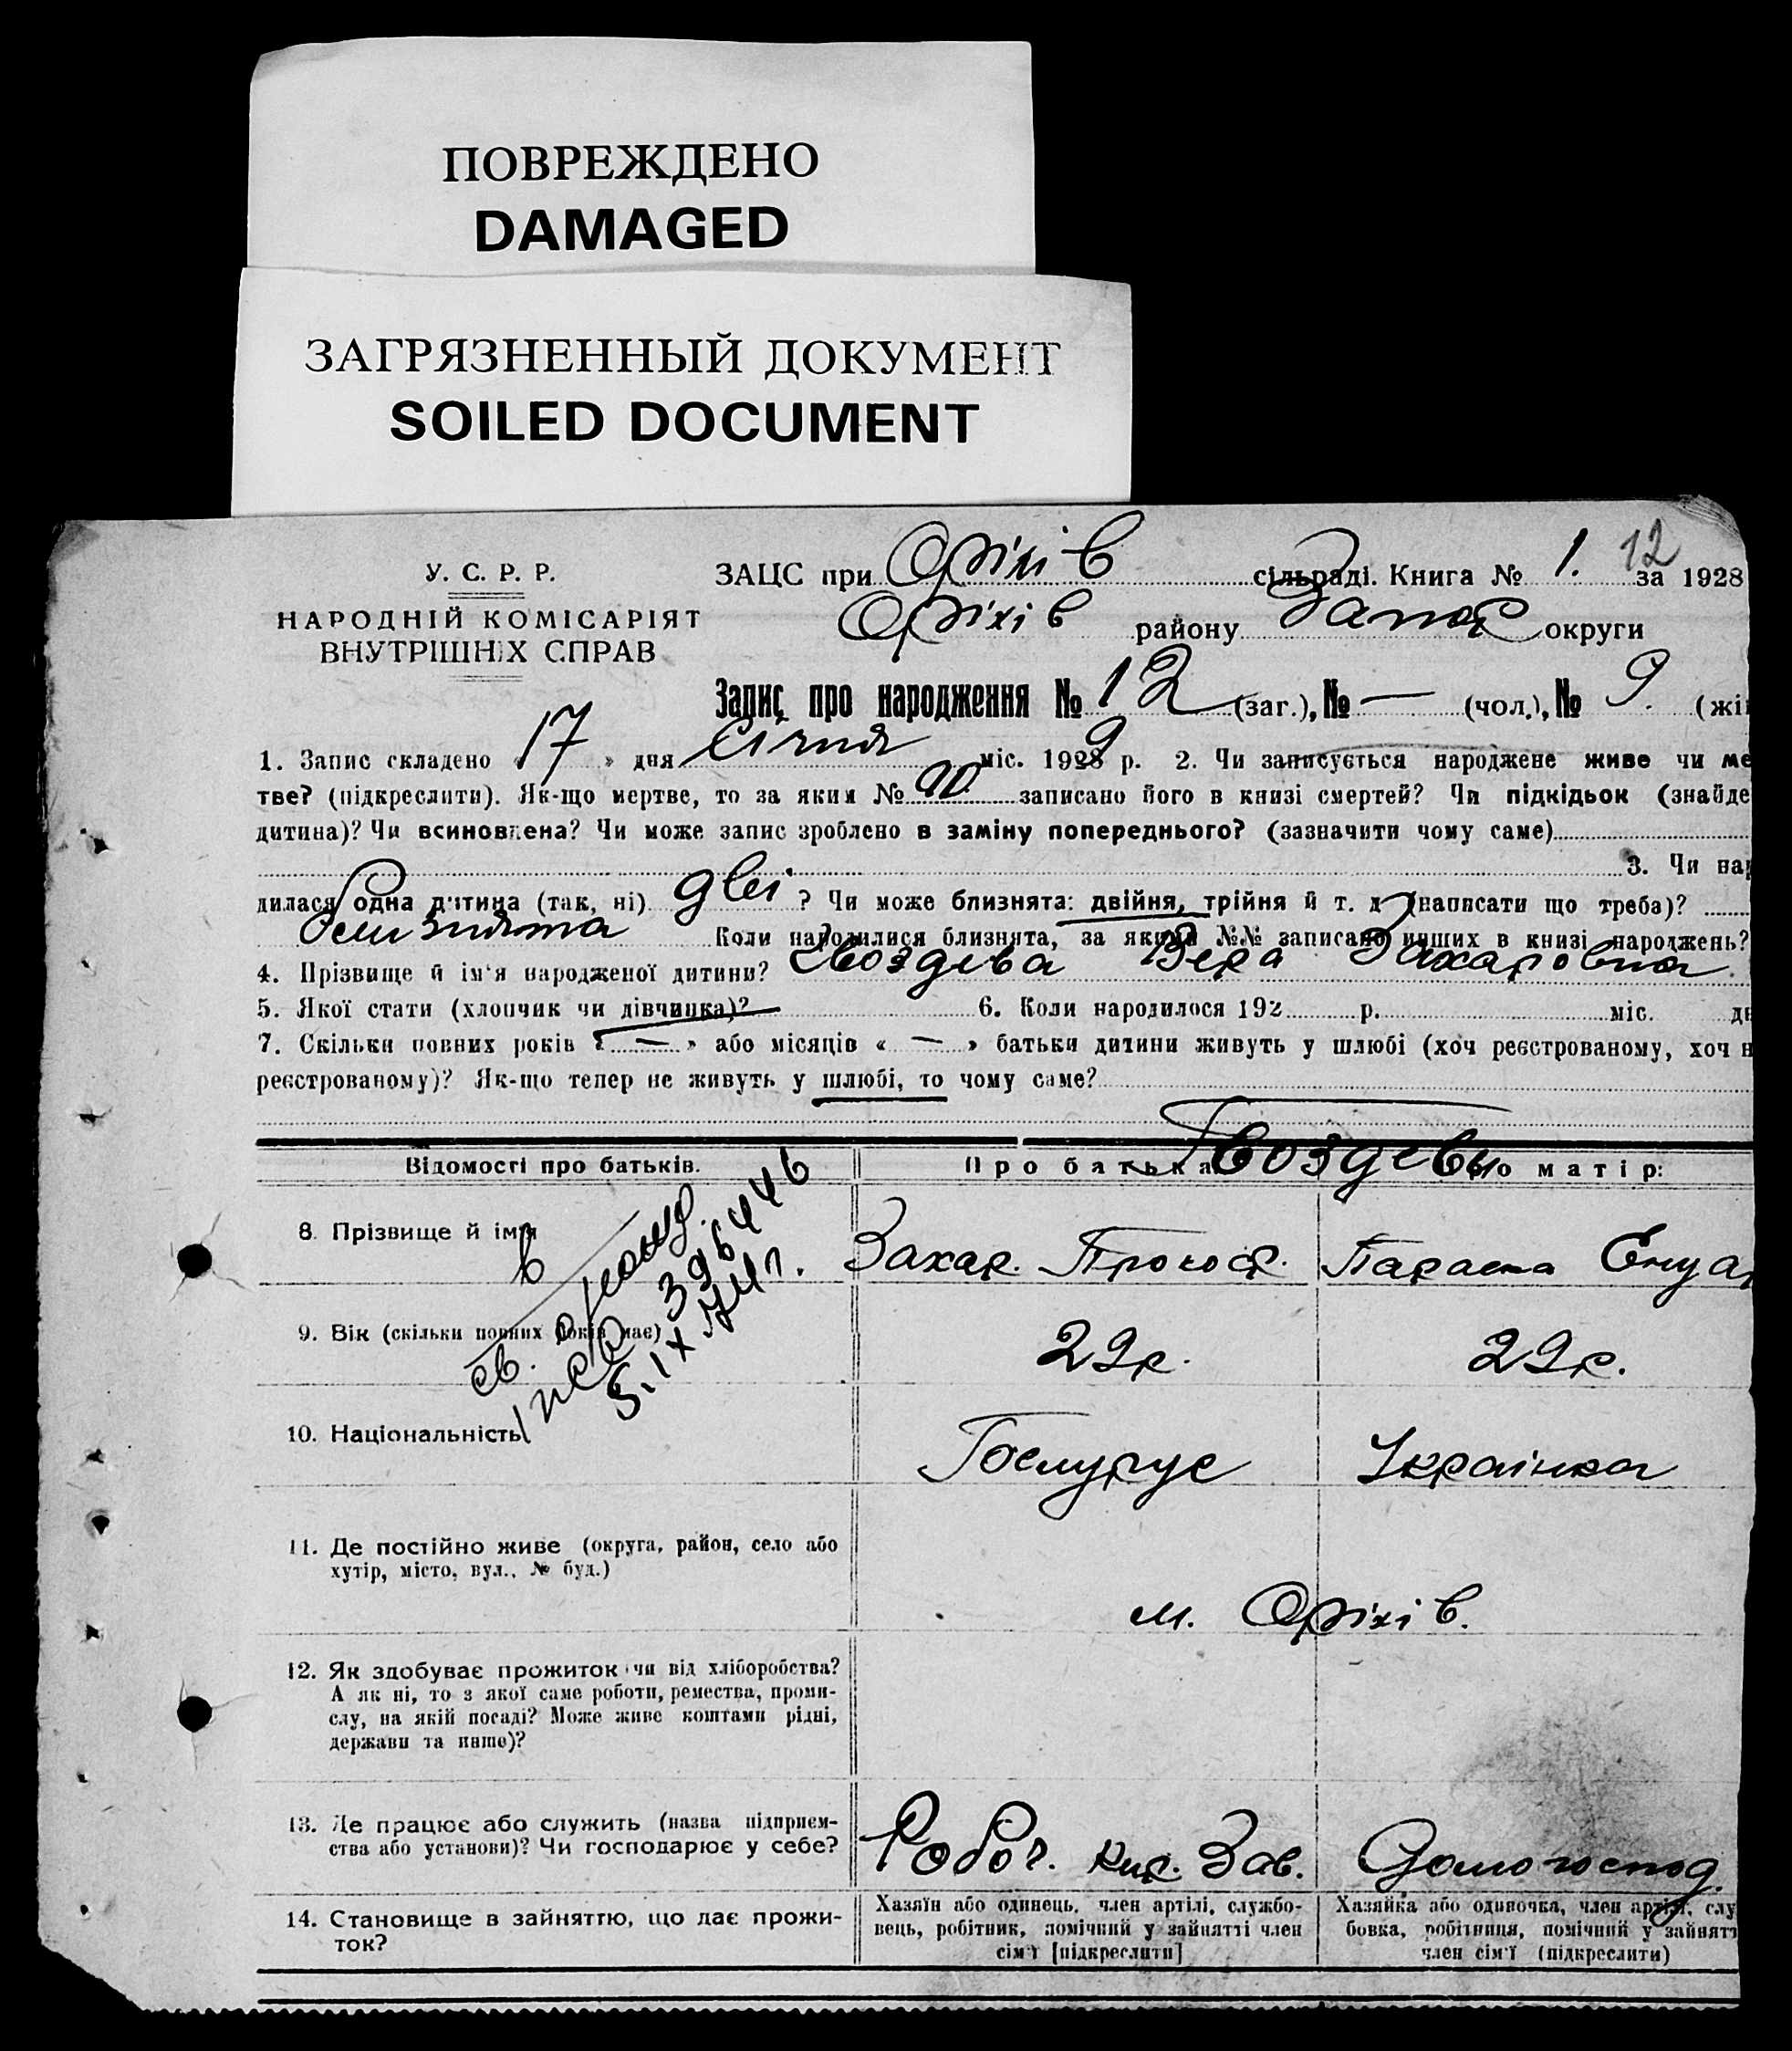 ПОВРЕЖДЕНО
DAMAGED
ЗАГРЯЗНЕННЫЙ ДОКУМЕНТ
SOILED DOCUMENT
12
У. С. Р. Р. ЗАЦС при Оріхів сільраді. Книга № 1. за 1928
НАРОДНІЙ КОМІСАРІЯТ Оріхів району Запор округи
ВНУТРІШНІХ СПРАВ
Запис про народження № 12 (заг.), № — (чол.), № 9. (жі
1. Запис складено « 17 » дня Січня міс. 1929 р. 2. Чи записується народжене живе чи ме
тве? (підкреслити). Як-що мертве, то за яким № записано його в книзі смертей? Чи підкідьок (знайде
дитина)? Чи всиновлена? Чи може запис зроблено в заміну попереднього? (зазначити чому саме)
3. Чи нар
дилася одна дитина (так, ні) двi ? Чи може близнята: двійня, трійня й т. д (написати що треба)?
близнята Коли народилися близнята, за якими №№ записано инших в книзі народжень?
4. Прізвище й ім'я народженої дитини? Гвоздева Вера Захаровна.
5. Якої стати (хлопчик чи дівчинка)? 6. Коли народилося 192 р. міс. дн
7. Скільки повних років « — » або місяців « — » батьки дитини живуть у шлюбі (хоч реєстрованому, хоч н
реєстрованому)? Як-що тепер не живуть у шлюбі, то чому саме?
Гвоздевы
Відомості про батьків. Про батька о матір:
8. Прізвище й ім'я Захар. Прокоф. Параска
9. Вік (скільки повних років має) 29р. 29р.
10. Національність Українка
11. Де постійно живе (округа, район, село або
хутір, місто, вул., № буд.)
м. Оріхів.
12. Як здобуває прожиток чи від хліборобства?
А як ні, то з якої саме роботи, ремества, проми-
слу, на якій посаді? Може живе коштами рідні,
держави та инше)?
13. Де працює або служить (назва підприєм-
ства або установи)? Чи господарює у себе?
Робоч. Кир. Зав. Домогоспод.
14. Становище в зайняттю, що дає прожи-
ток?
Хазяїн або одинець, член артілі, службо-
вець, робітник, помічний у зайнятті член
сім'ї [підкреслити]
Хазяйка або одиночка, член артілі, слу
бовка, робітниця, помічний у зайнятт
член сім'ї (підкреслити)